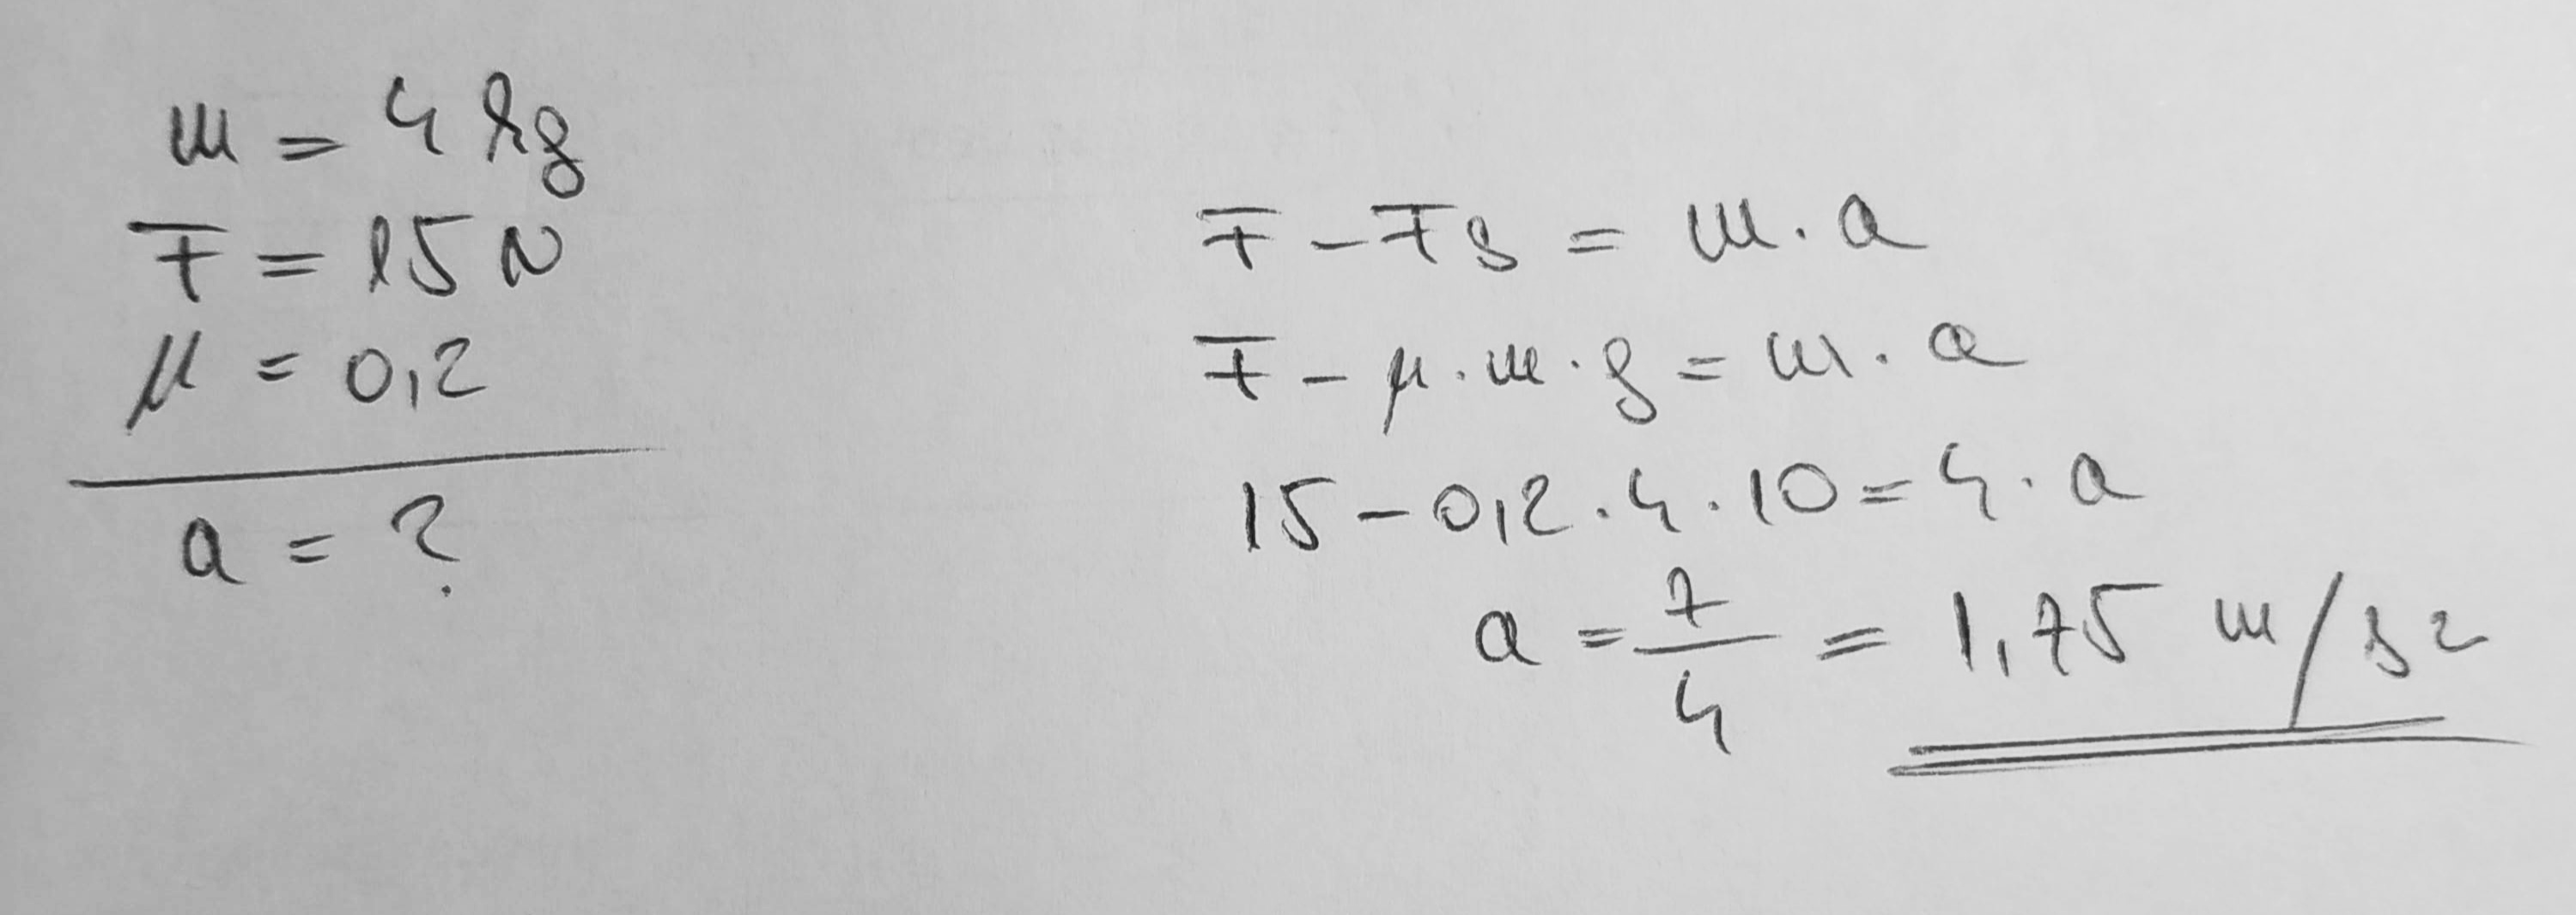 m = 4 kg
F = 15 N
μ = 0,2
a = ?
F - Fs = m · a
F - μ · m · g = m · a
15 - 0,2 · 4 · 10 = 4 · a
a = 7/4 = 1,75 m/s2